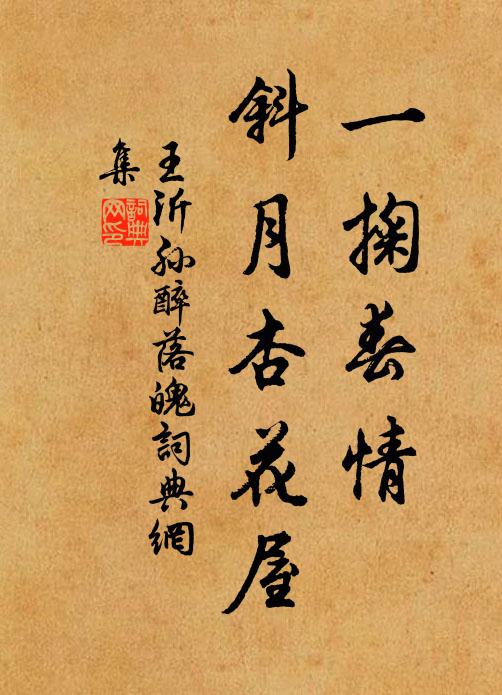 一掬春情
斜月杏花屋
王沂孙醉落魄詞典網
集
詞典网印